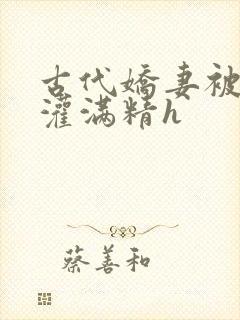 古代嬌妻被
灌满精h
蔡善和